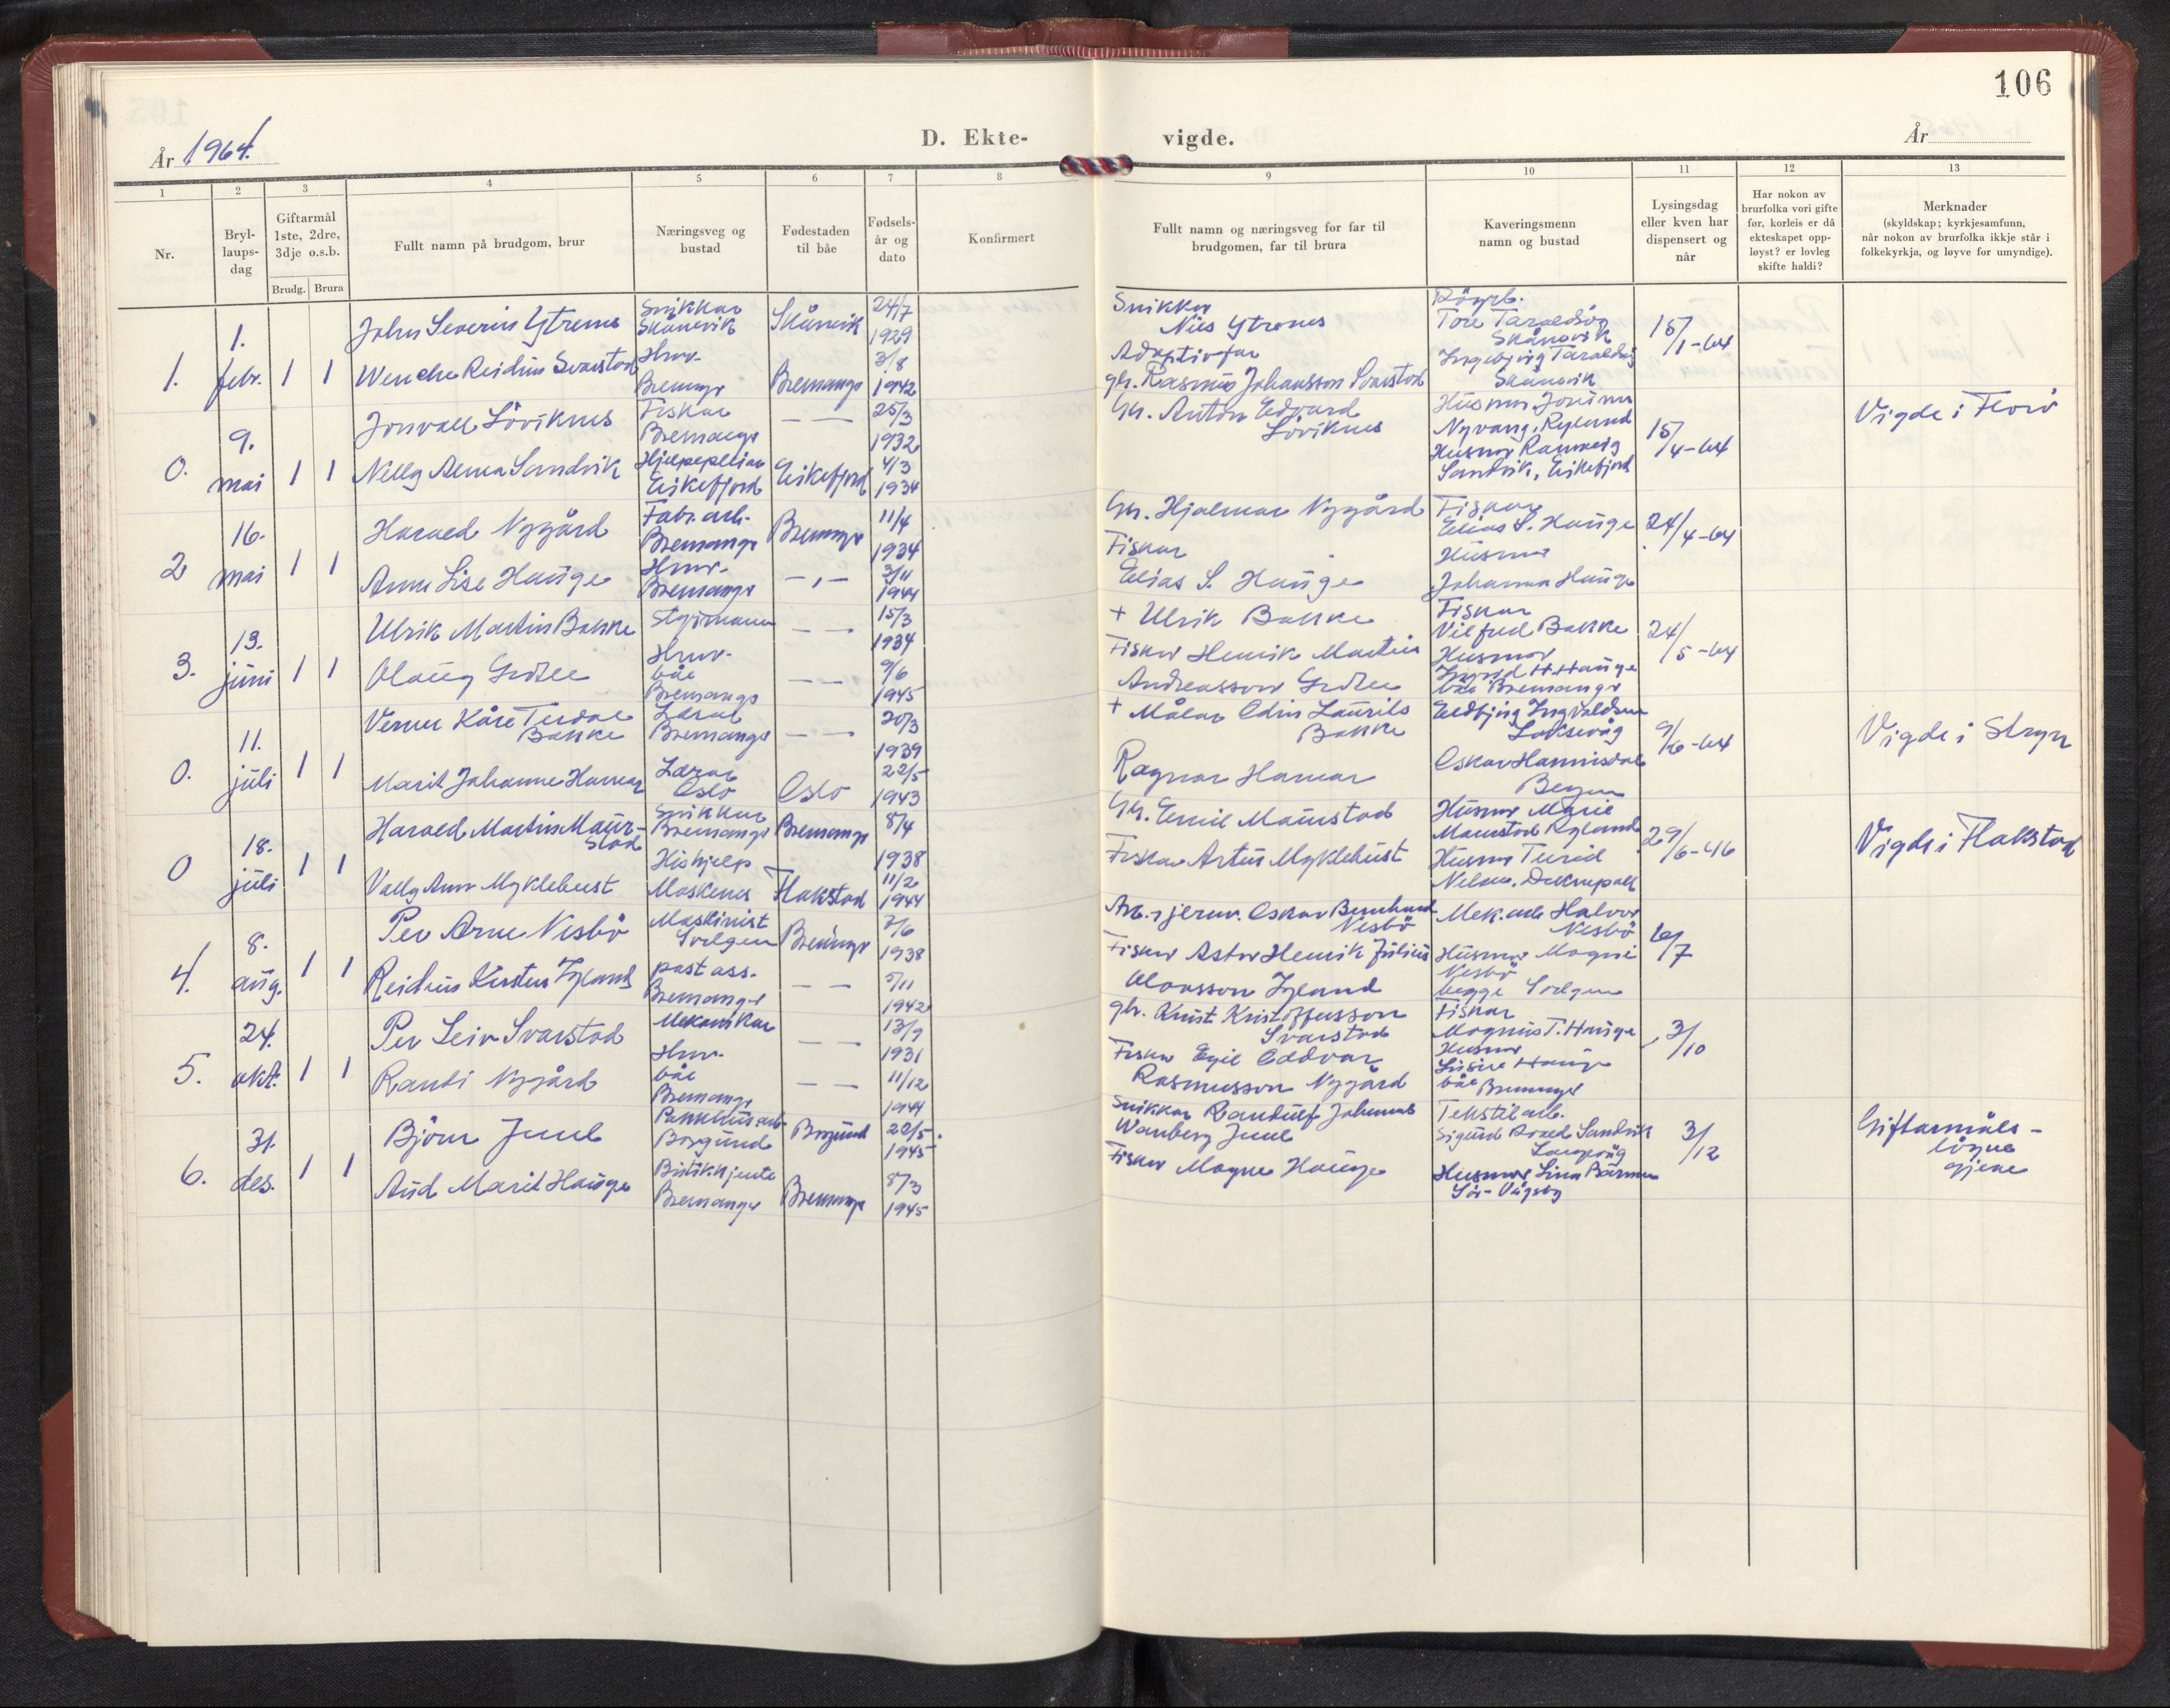 106
År 1964.
D. Ekte-
vigde.
År
1
2
3
4
5
6
7
8
9
10
11
12
13
Nr.
Bryl-
laups-
dag
Giftarmål
1ste, 2dre,
3dje o.s.b.
Brudg.
Brura
Fullt namn på brudgom, brur
Næringsveg og
bustad
Fødestaden
til båe
Fødsels-
år og
dato
Konfirmert
Fullt namn og næringsveg for far til
brudgomen, far til brura
Kaveringsmenn
namn og bustad
Lysingsdag
eller kven har
dispensert og
når
Har nokon av
brurfolka vori gifte
før, korleis er då
ekteskapet opp-
løyst? er lovleg
skifte haldi?
Merknader
(skyldskap; kyrkjesamfunn,
når nokon av brurfolka ikkje står i
folkekyrkja, og løyve for umyndige).
1.
1.
febr.
1
1
John Severin Ytrenes
Snikkar
Skånevik
Skånevik
24/7
1929
Wenche Reidun Svarstad
Hmr.
Bremanger
Bremanger
3/8
1942
Snikkar
Nils Ytrenes
Adoptivfar
gbr. Rasmus Johansson Svarstad
Tore Taraldsøy
Skånevik
Ingebjørg Taraldsøy
Skånevik
15/1-64
0.
9.
mai
1
1
Jonvall Löviknes
Fiskar
Bremanger
— —
25/3
1932
Nelly Alma Sandvik
Hjelpepleiar
Eikefjord
Eikefjord
4/3
1934
Gbr. Anton Edvard
Löviknes
Husmor
Nyvang, Rylund
Husmor Rannveig
Sandvik, Eikefjord
15/4-64
Vigde i Florö
2
16.
mai
1
1
Harald Nygård
Fabr. arb.
Bremanger
Bremanger
11/4
1934
Anne Lise Hauge
Hmr.
Bremanger
— „ —
3/11
1944
Gbr. Hjalmar Nygård
Fiskar
Elias S. Hauge
Fiskar
Elias S. Hauge
Husmor
Johanna Hauge
24/4-64
3.
13.
juni
1
1
Ulrik Martin Bakke
Styrmann
— —
15/3
1934
Olaug Grotle
Hmr.
båe
Bremanger
— —
9/6
1945
+ Ulrik Bakke
Fiskar Henrik Martin
Andreasson Grotle
Fiskar
Vilfred Bakke
Husmor
Ingrid H. Hauge
båe Bremanger
24/5-64
0.
11.
juli
1
1
Verner Kåre Terdal
Bakke
Lærar
Bremanger
— —
20/3
1939
Marit Johanne Hamar
Lærar
Oslo
Oslo
22/5
1943
+ Målar Edin Laurits
Bakke
Ragnar Hamar
Eldbjørg Ingvaldsen
Laksevåg
Oskar Hannisdal
Bergen
9/6-64
Vigde i Stryn
0
18.
juli
1
1
Harald Martin Maur-
stad
Snikkar
Bremanger
Bremanger
8/4
1938
Vally Ann Myklebust
Hushjelp
Moskenes
Flakstad
11/2
1944
Gbr. Emil Maurstad
Fiskar Artur Myklebust
Husmor Marie
Maurstad Rylund
Husmor Turid
29/6-46
Vigde i Flakstad
4.
8.
aug.
1
1
Per Arne Nesbö
Maskinist
Svelgen
Bremanger
2/6
1938
Reidun Kirsten Igland
post ass.
Bremanger
— —
5/11
1942
Arb. i jernv. Oskar Bernhard
Nesbö
Fiskar Astor Henrik Julius
Olavsson Igland
Mek. arb. Halvor
Nesbö
Husmor Magni
Nesbö
begge Svelgen
6/7
5.
24.
okt.
1
1
Per Leiv Svarstad
Mekanikar
— —
13/9
1931
Randi Nygård
Hmr.
båe
Bremanger
— —
11/12
1944
gbr. Knut Kristoffersson
Svarstad
Fiskar Egil Oddvar
Rasmusson Nygård
Fiskar
Magnus T. Hauge
Husmor
Lusine Hauge
båe Bremanger
3/10
6.
31.
des.
1
1
Björn Juul
Pakkhusarb.
Borgund
Borgund
22/5.
1945
Aud Marit Hauge
Butikkjente
Bremanger
Bremanger
8/3
1945
Snikkar Randulf Johannes
Wanberg Juul
Fiskar Magne Hauge
Tekstilarb.
Sigurd Roald Sandvik
Langevåg
Husmor Lina Bårmen
Sör-Vågsøy
3/12
Giftarmåls-
löyve
gjeve